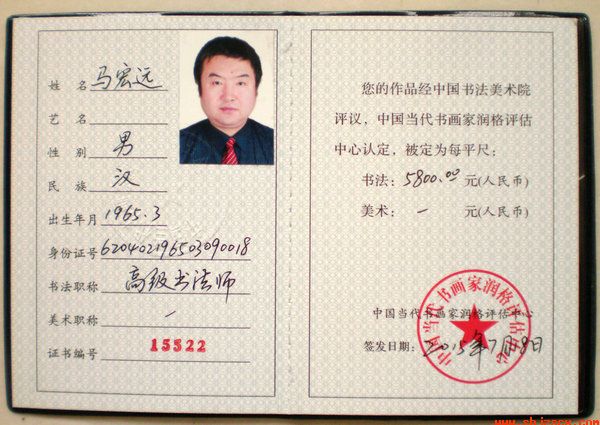 姓 名 马宏远
艺 名
性 别 男
民 族 汉
出生年月 1965.3
身份证号 620402196503090018
书法职称 高级书法师
美术职称 一
证书编号 15522
您的作品经中国书法美术院
评议，中国当代书画家润格评估
中心认定，被定为每平尺：
书法：5800.00 元(人民币)
美术： 一 元(人民币)
中国当代书画家润格评估中心
签发日期：2015年7月8日
中国当代书画家润格评估中心